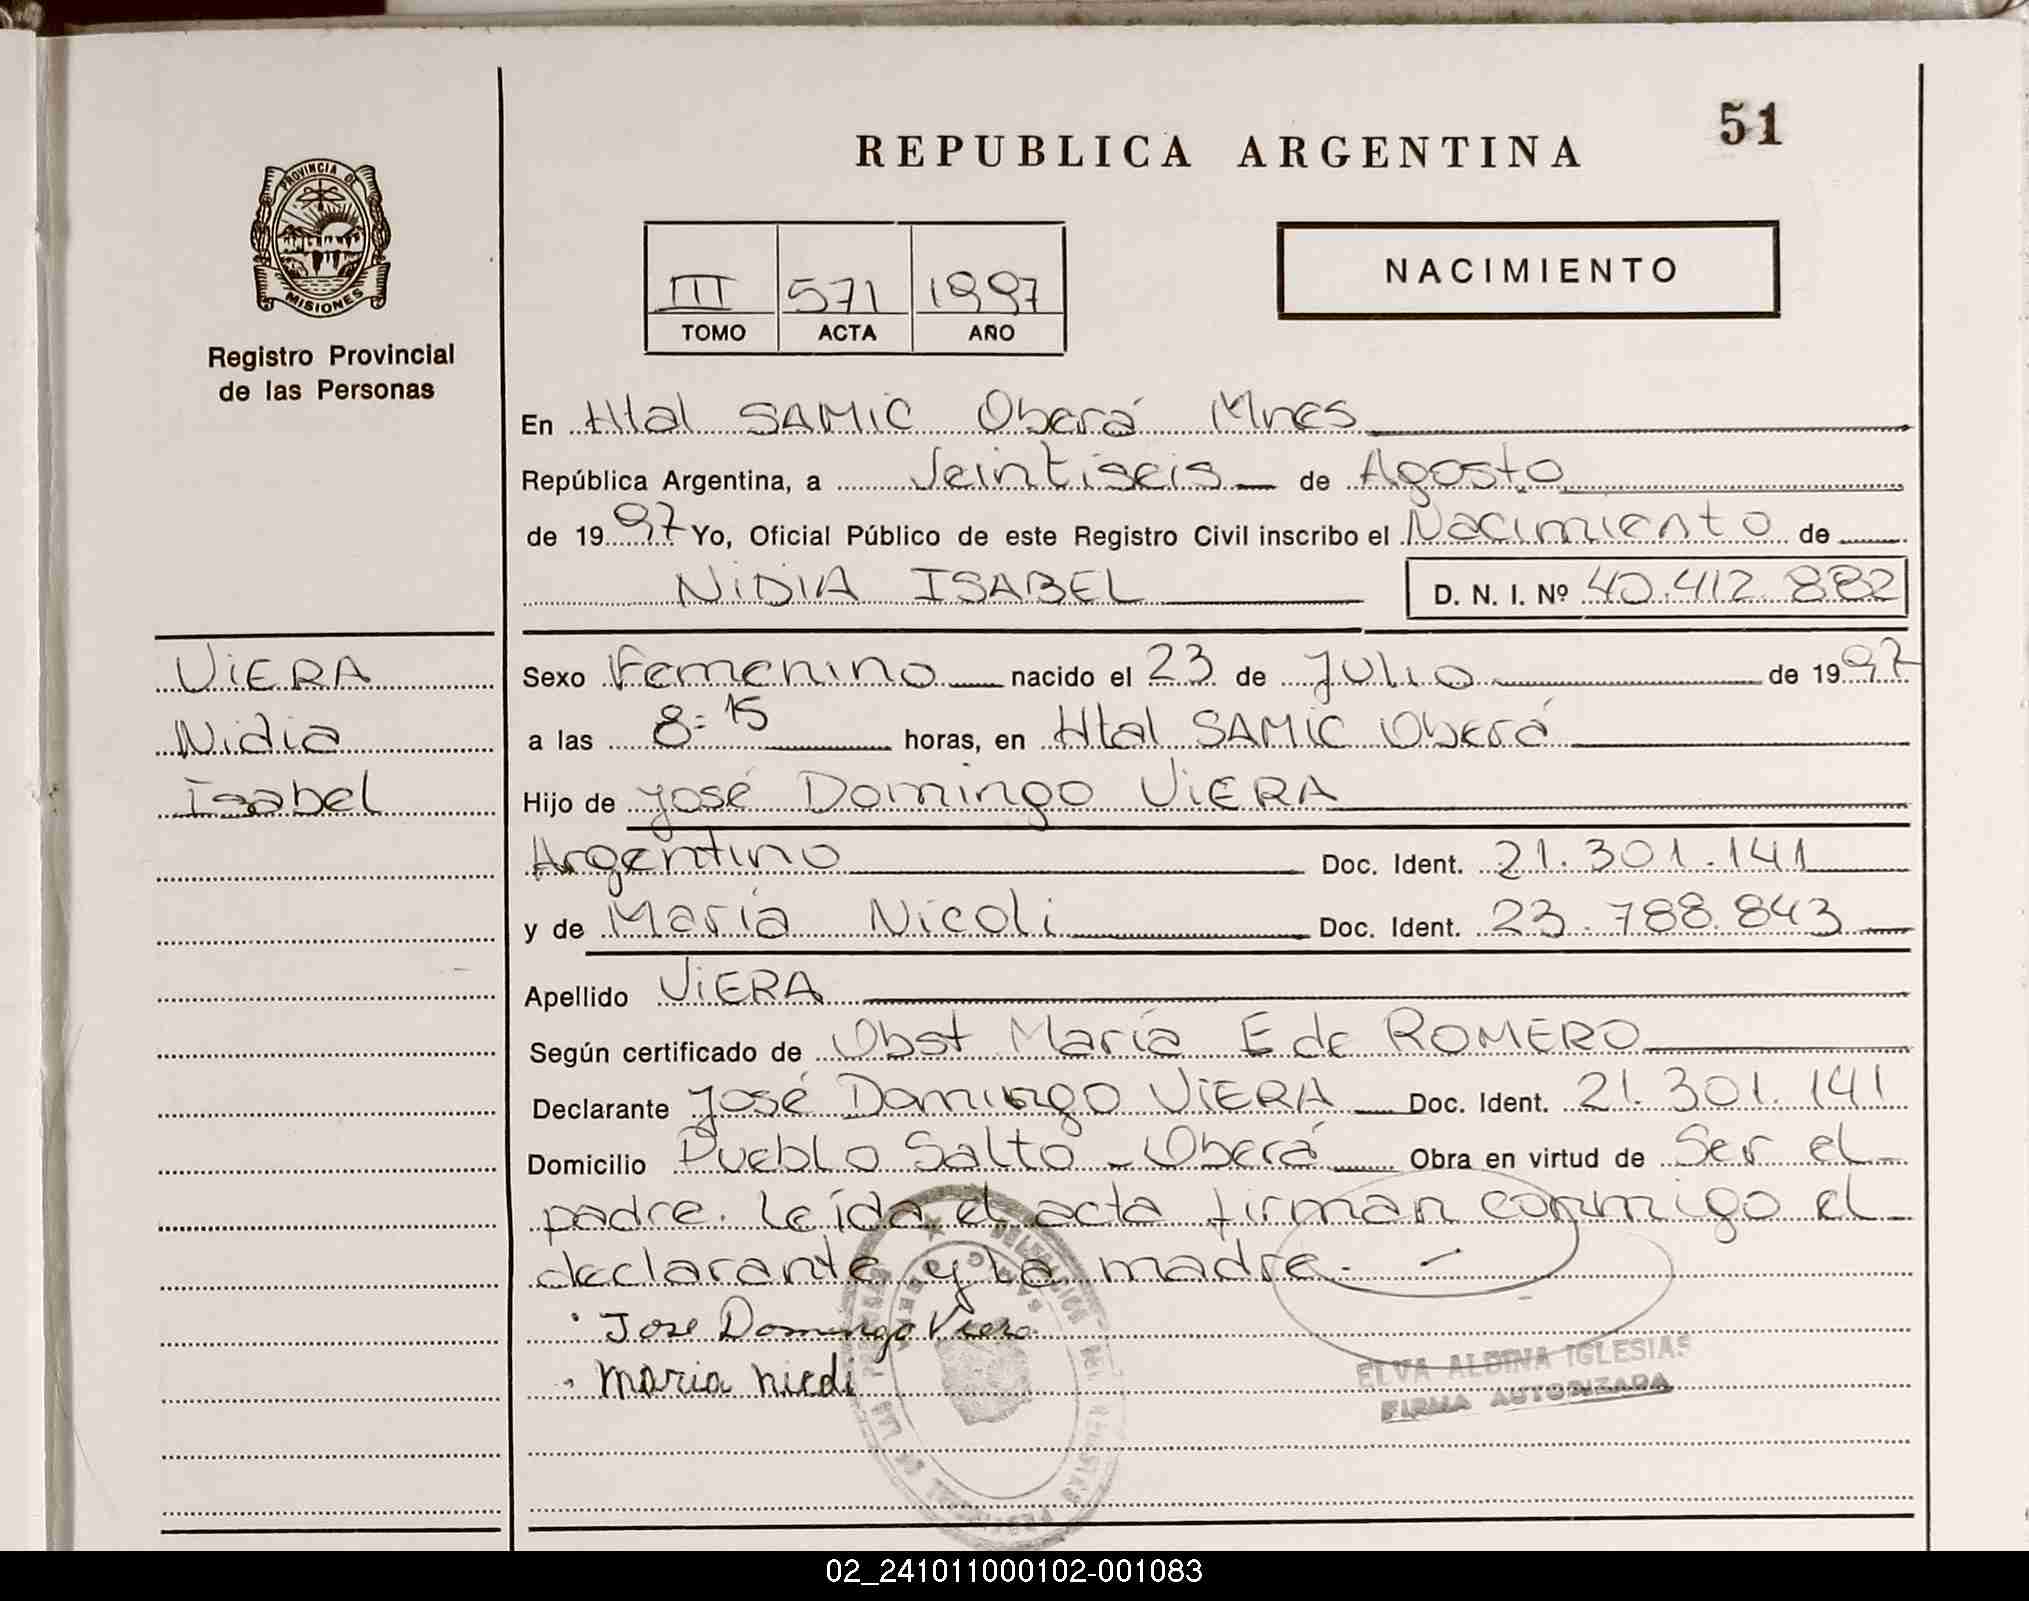 51
REPUBLICA ARGENTINA
PROVINCIA DE
MISIONES
Registro Provincial
de las Personas
III 571 1997
TOMO ACTA AÑO
NACIMIENTO
En Htal SAMIC Oberá Mnes
República Argentina, a Veintiseis de Agosto
de 1997 Yo, Oficial Público de este Registro Civil inscribo el Nacimiento de
NIDIA ISABEL D. N. I. Nº 40.412.882
VIERA
Nidia
Isabel
Sexo Femenino nacido el 23 de Julio de 1997
a las 8:15 horas, en Htal SAMIC Oberá
Hijo de José Domingo VIERA
Argentino Doc. Ident. 21.301.141
y de María Nicoli Doc. Ident. 23.788.843
Apellido VIERA
Según certificado de Obst María E de ROMERO
Declarante José Domingo VIERA Doc. Ident. 21.301.141
Domicilio Pueblo Salto - Oberá Obra en virtud de Ser el
padre. Leída el acta firman conmigo el
declarante y la madre.-
Jose Domingo Viera
maria nicoli
ELVA ALDINA IGLESIAS
FIRMA AUTORIZADA
02_241011000102-001083